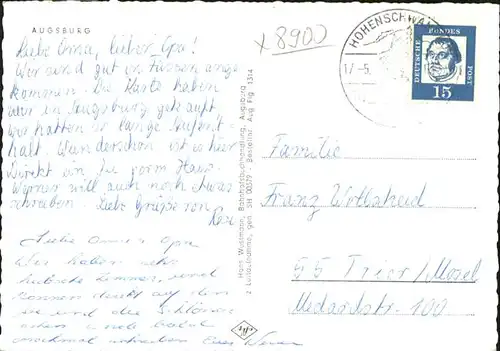 AUGSBURG
x 8900
Liebe Oma, lieber Opa!
Wir sind gut in Füssen ange
kommen. Die Karte haben
wir in Augsburg gekauft
wir hatten so lange Aufent-
halt. Wunderschön ist es hier
Direkt ein See vorm Haus.
Werner will auch noch etwas
schreiben. Liebe Grüße von
Rosi
Liebe Oma u. Opa
Wir haben sehr
hübsche Zimmer, und
können direkt auf den
See und die Schlösser
sehen
nochmal schreiben Euer Werner
HOHENSCHWA
17.-5.
DEUTSCHE BUNDES
POST
15
Familie
Franz Wollscheid
55 Trier/Mosel
Medardstr. 100
Hans Wussmann, Bahnhofsbuchhandlung, Augsburg
z Luftaufnahme, gen. SH 00079 · Bestellnr. Aug Flg 1314